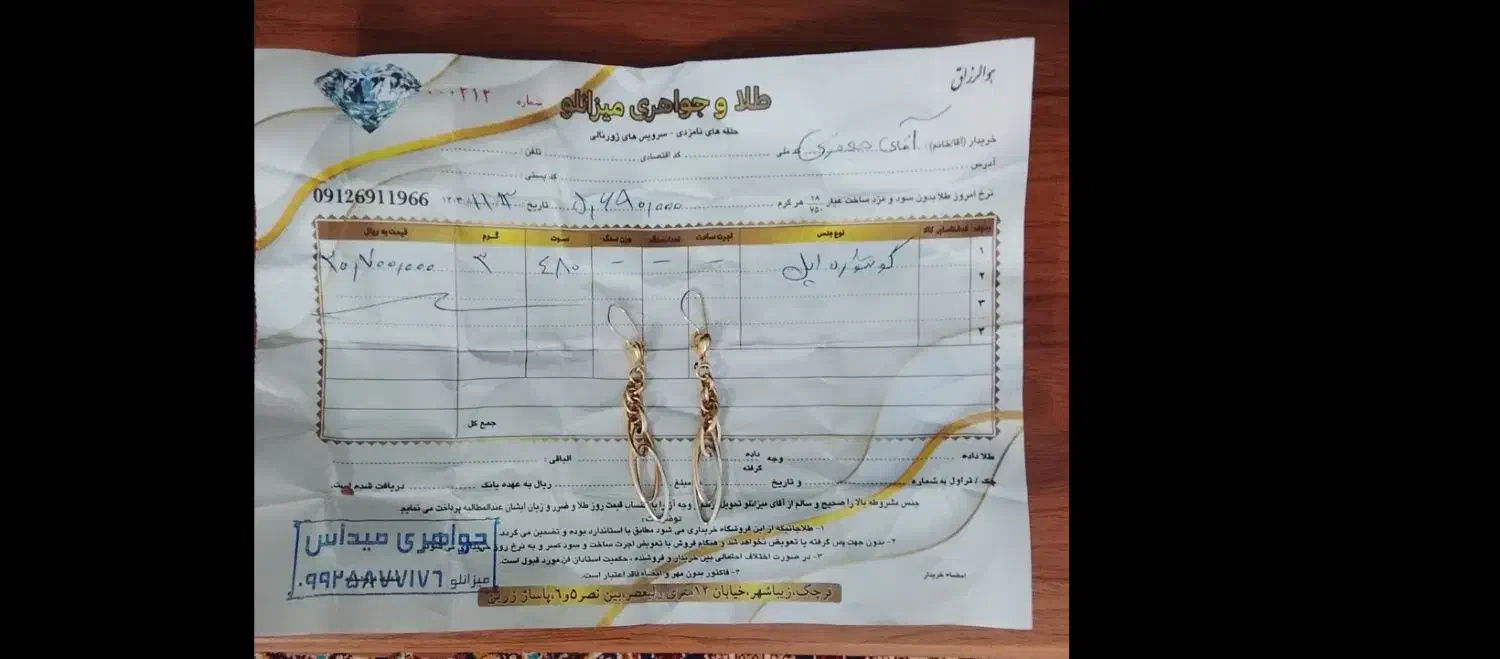 هوالرزاق
طلا و جواهری میزانلو
شماره ۰۰۰۲۱۲
حلقه های نامزدی - سرویس های ژورنالی
خریدار (آقا/خانم): آقای کد ملی کد اقتصادی تلفن
آدرس کد پستی
نرخ امروز طلا بدون سود و مزد ساخت عیار ۱۸/۷۵۰ هر گرم تاریخ ۱۴۰۳ 09126911966
ردیف کدشناسایی کالا نوع جنس اجرت ساخت تعدادسنگ وزن سنگ سوت گرم قیمت به ریال
۱ گوشواره اپل - - - ۴۸۰ ۳ ۲۰,۷۰۰,۰۰۰
۲
۳
۴
جمع کل
طلا داده وجه داده گرفته الباقی :
چک / تراول به شماره و تاریخ مبلغ ریال به عهده بانک دریافت شده است.
جنس مشروطه بالا را صحیح و سالم از آقای میزانلو تحویل وجه آن را قیمت روز طلا و ضرر و زیان ایشان عندالمطالبه پرداخت می نمایم
۱- طلاجاتیکه از این فروشگاه خریداری می شود مطابق با استاندارد بوده و تضمین می گردد.
۲- بدون جهت پس گرفته یا تعویض نخواهد شد و هنگام فروش یا تعویض اجرت ساخت و سود کسر و به نرخ روز
۳- در صورت اختلاف احتمالی بین خریدار و فروشنده ، حکمیت استادان فن مورد قبول است.
۴- فاکتور بدون مهر و امضاء فاقد اعتبار است.
امضاء خریدار
جواهری میداس
میزانلو ۰۹۹۲۵۸۷۷۱۷۶
قرچک،زیباشهر،خیابان ۱۲متری ولیعصر،بین نصر۵و۶،پاساژ زرین